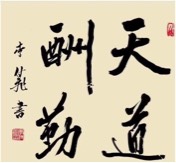 天道
酬勤
李巍書